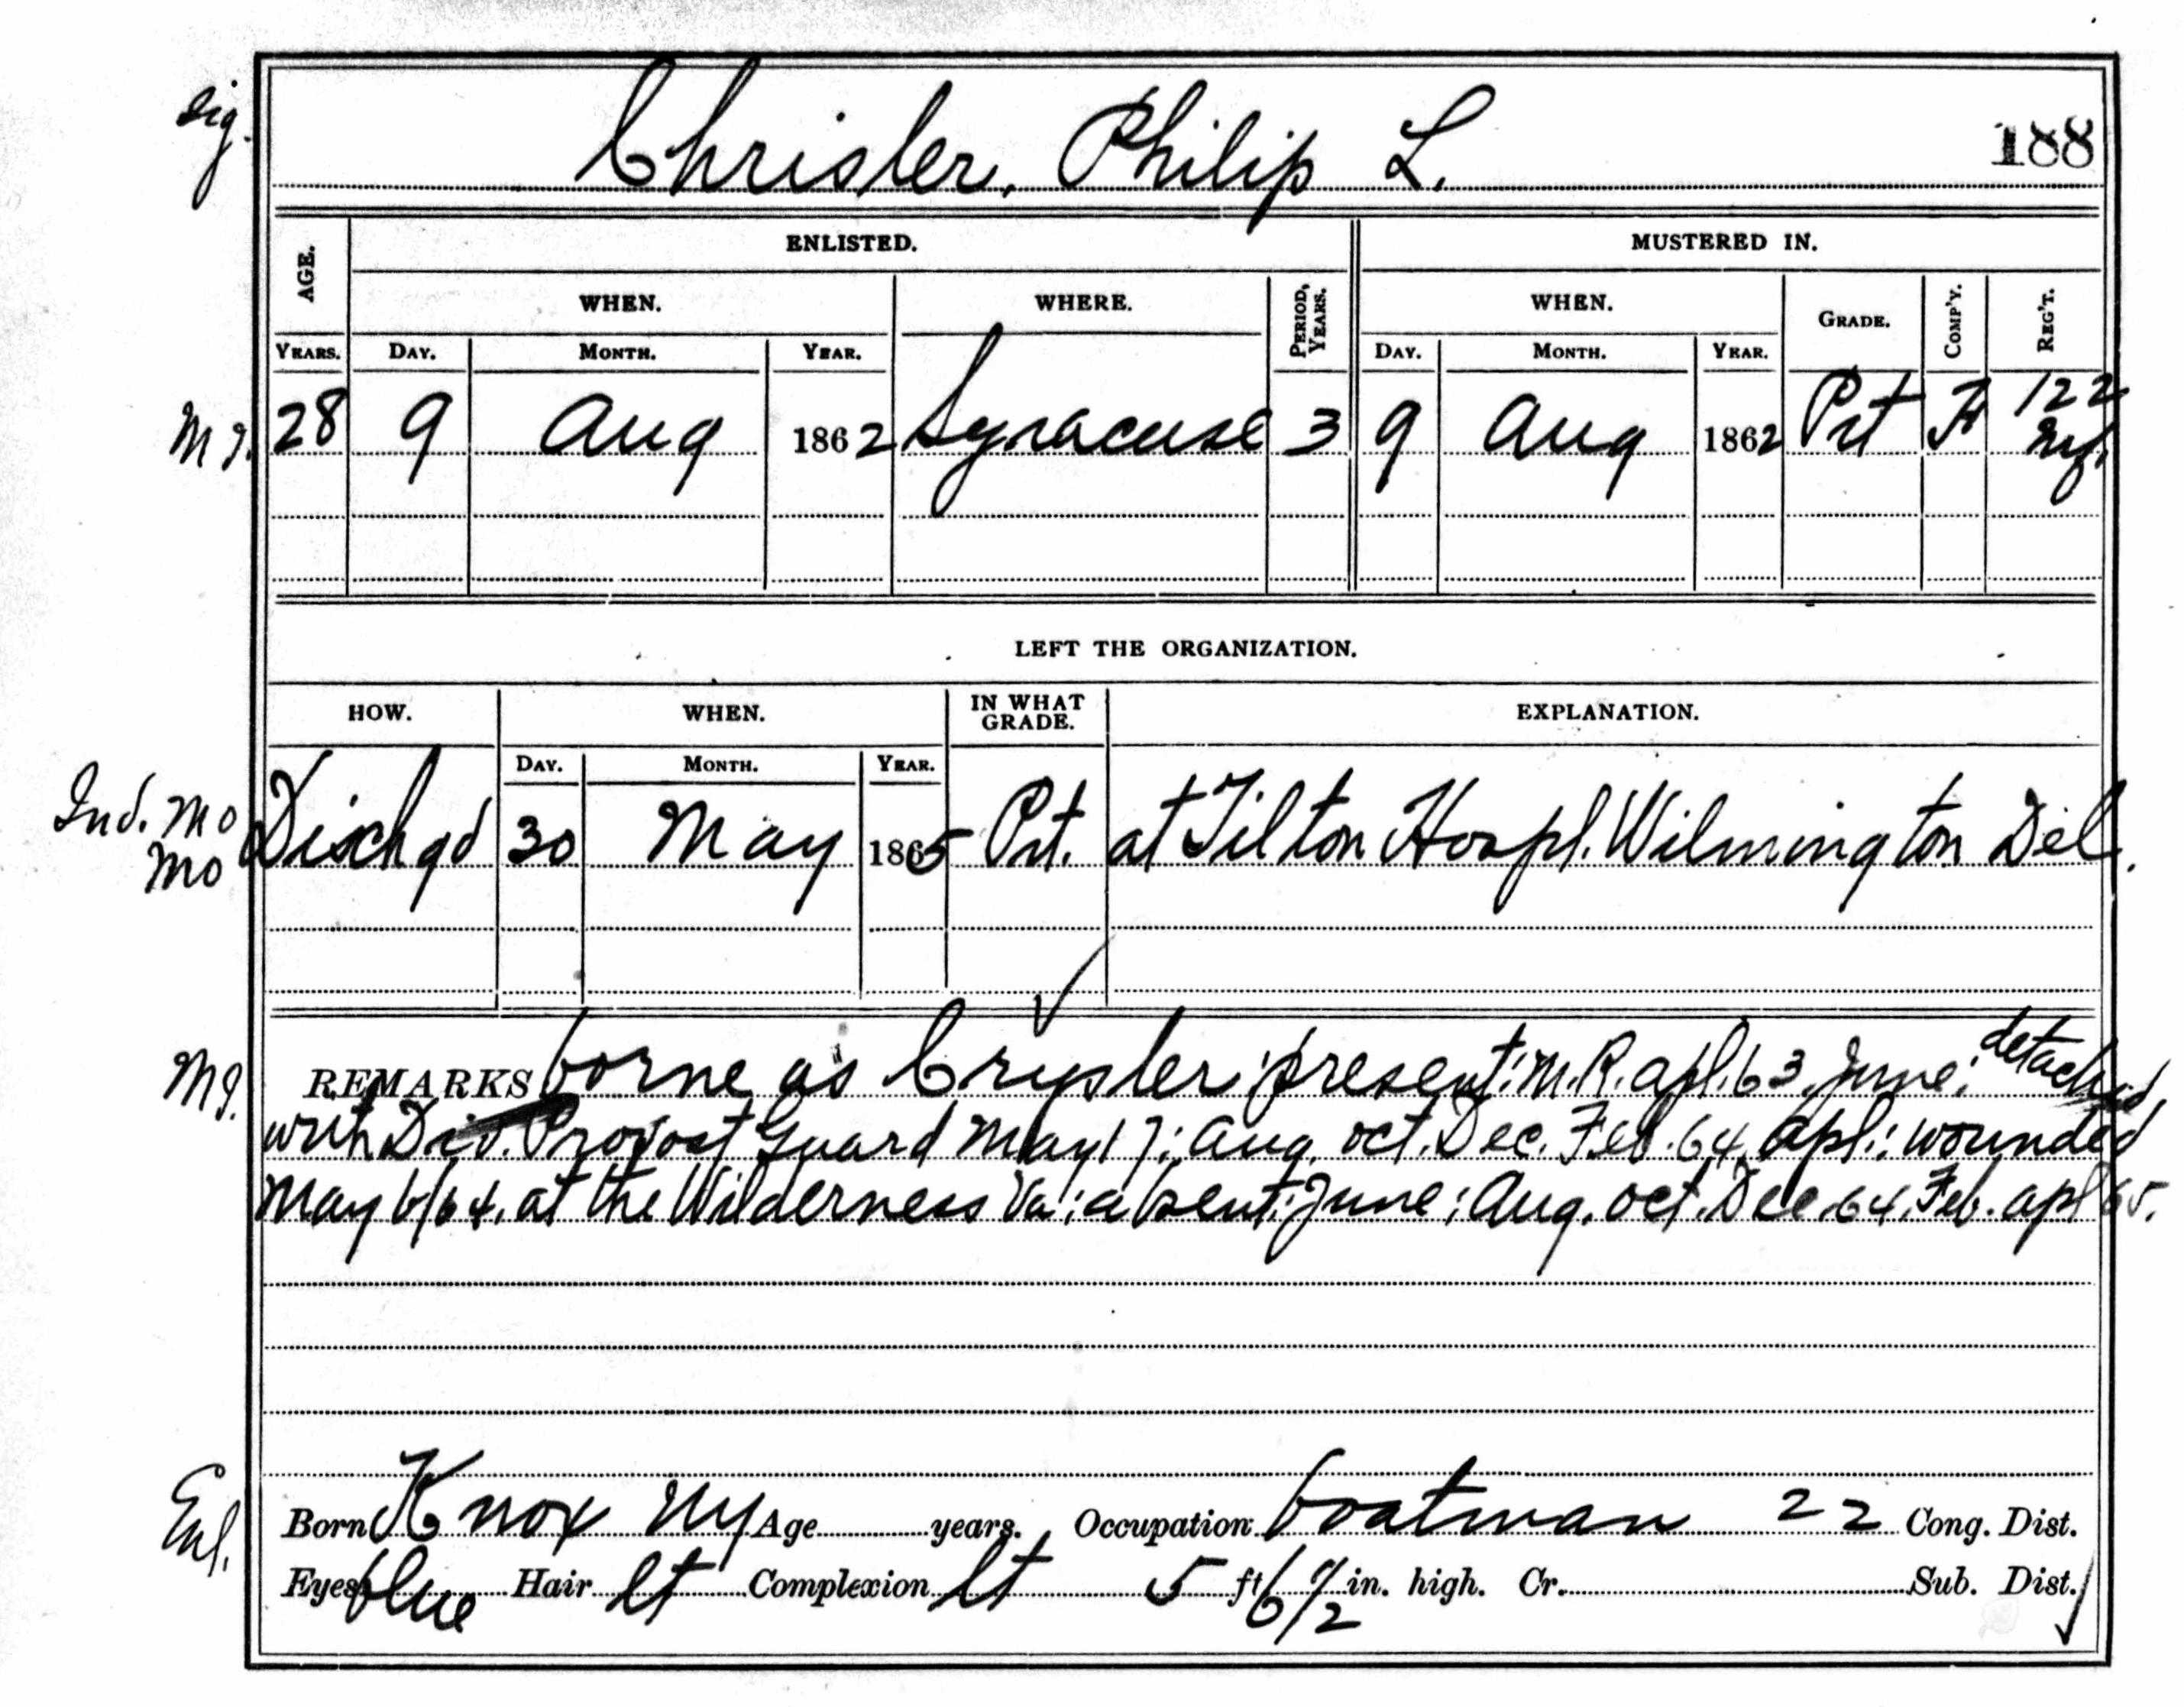 sig.
Chrisler, Philip L. 188
AGE. ENLISTED. MUSTERED IN.
WHEN. WHERE. PERIOD, YEARS. WHEN. GRADE. COMP'Y. REG'T.
YEARS. DAY. MONTH. YEAR. DAY. MONTH. YEAR.
M I. 28 9 Aug 1862 Syracuse 3 9 Aug 1862 Prt 122
Ny.
LEFT THE ORGANIZATION.
HOW. WHEN. IN WHAT GRADE. EXPLANATION.
DAY. MONTH. YEAR.
Ind. Mo
Mo Dischgd 30 May 1865 Prt. at Tilton Hospl. Wilmington Del.
M I. REMARKS borne as Crysler; present: M.R. Apl. 63. June; detached
with Div. Provost Guard May 17; Aug. Oct. Dec. Feb. 64. Apl.; wounded
May 6/64, at the Wilderness Va; absent; June; Aug. Oct. Dec. 64. Feb. Apl 65.
Enl. Born Knox Ny Age years. Occupation boatman 22 Cong. Dist.
Eyes blue Hair lt Complexion lt 5 ft 6 1/2 in. high. Cr. Sub. Dist.